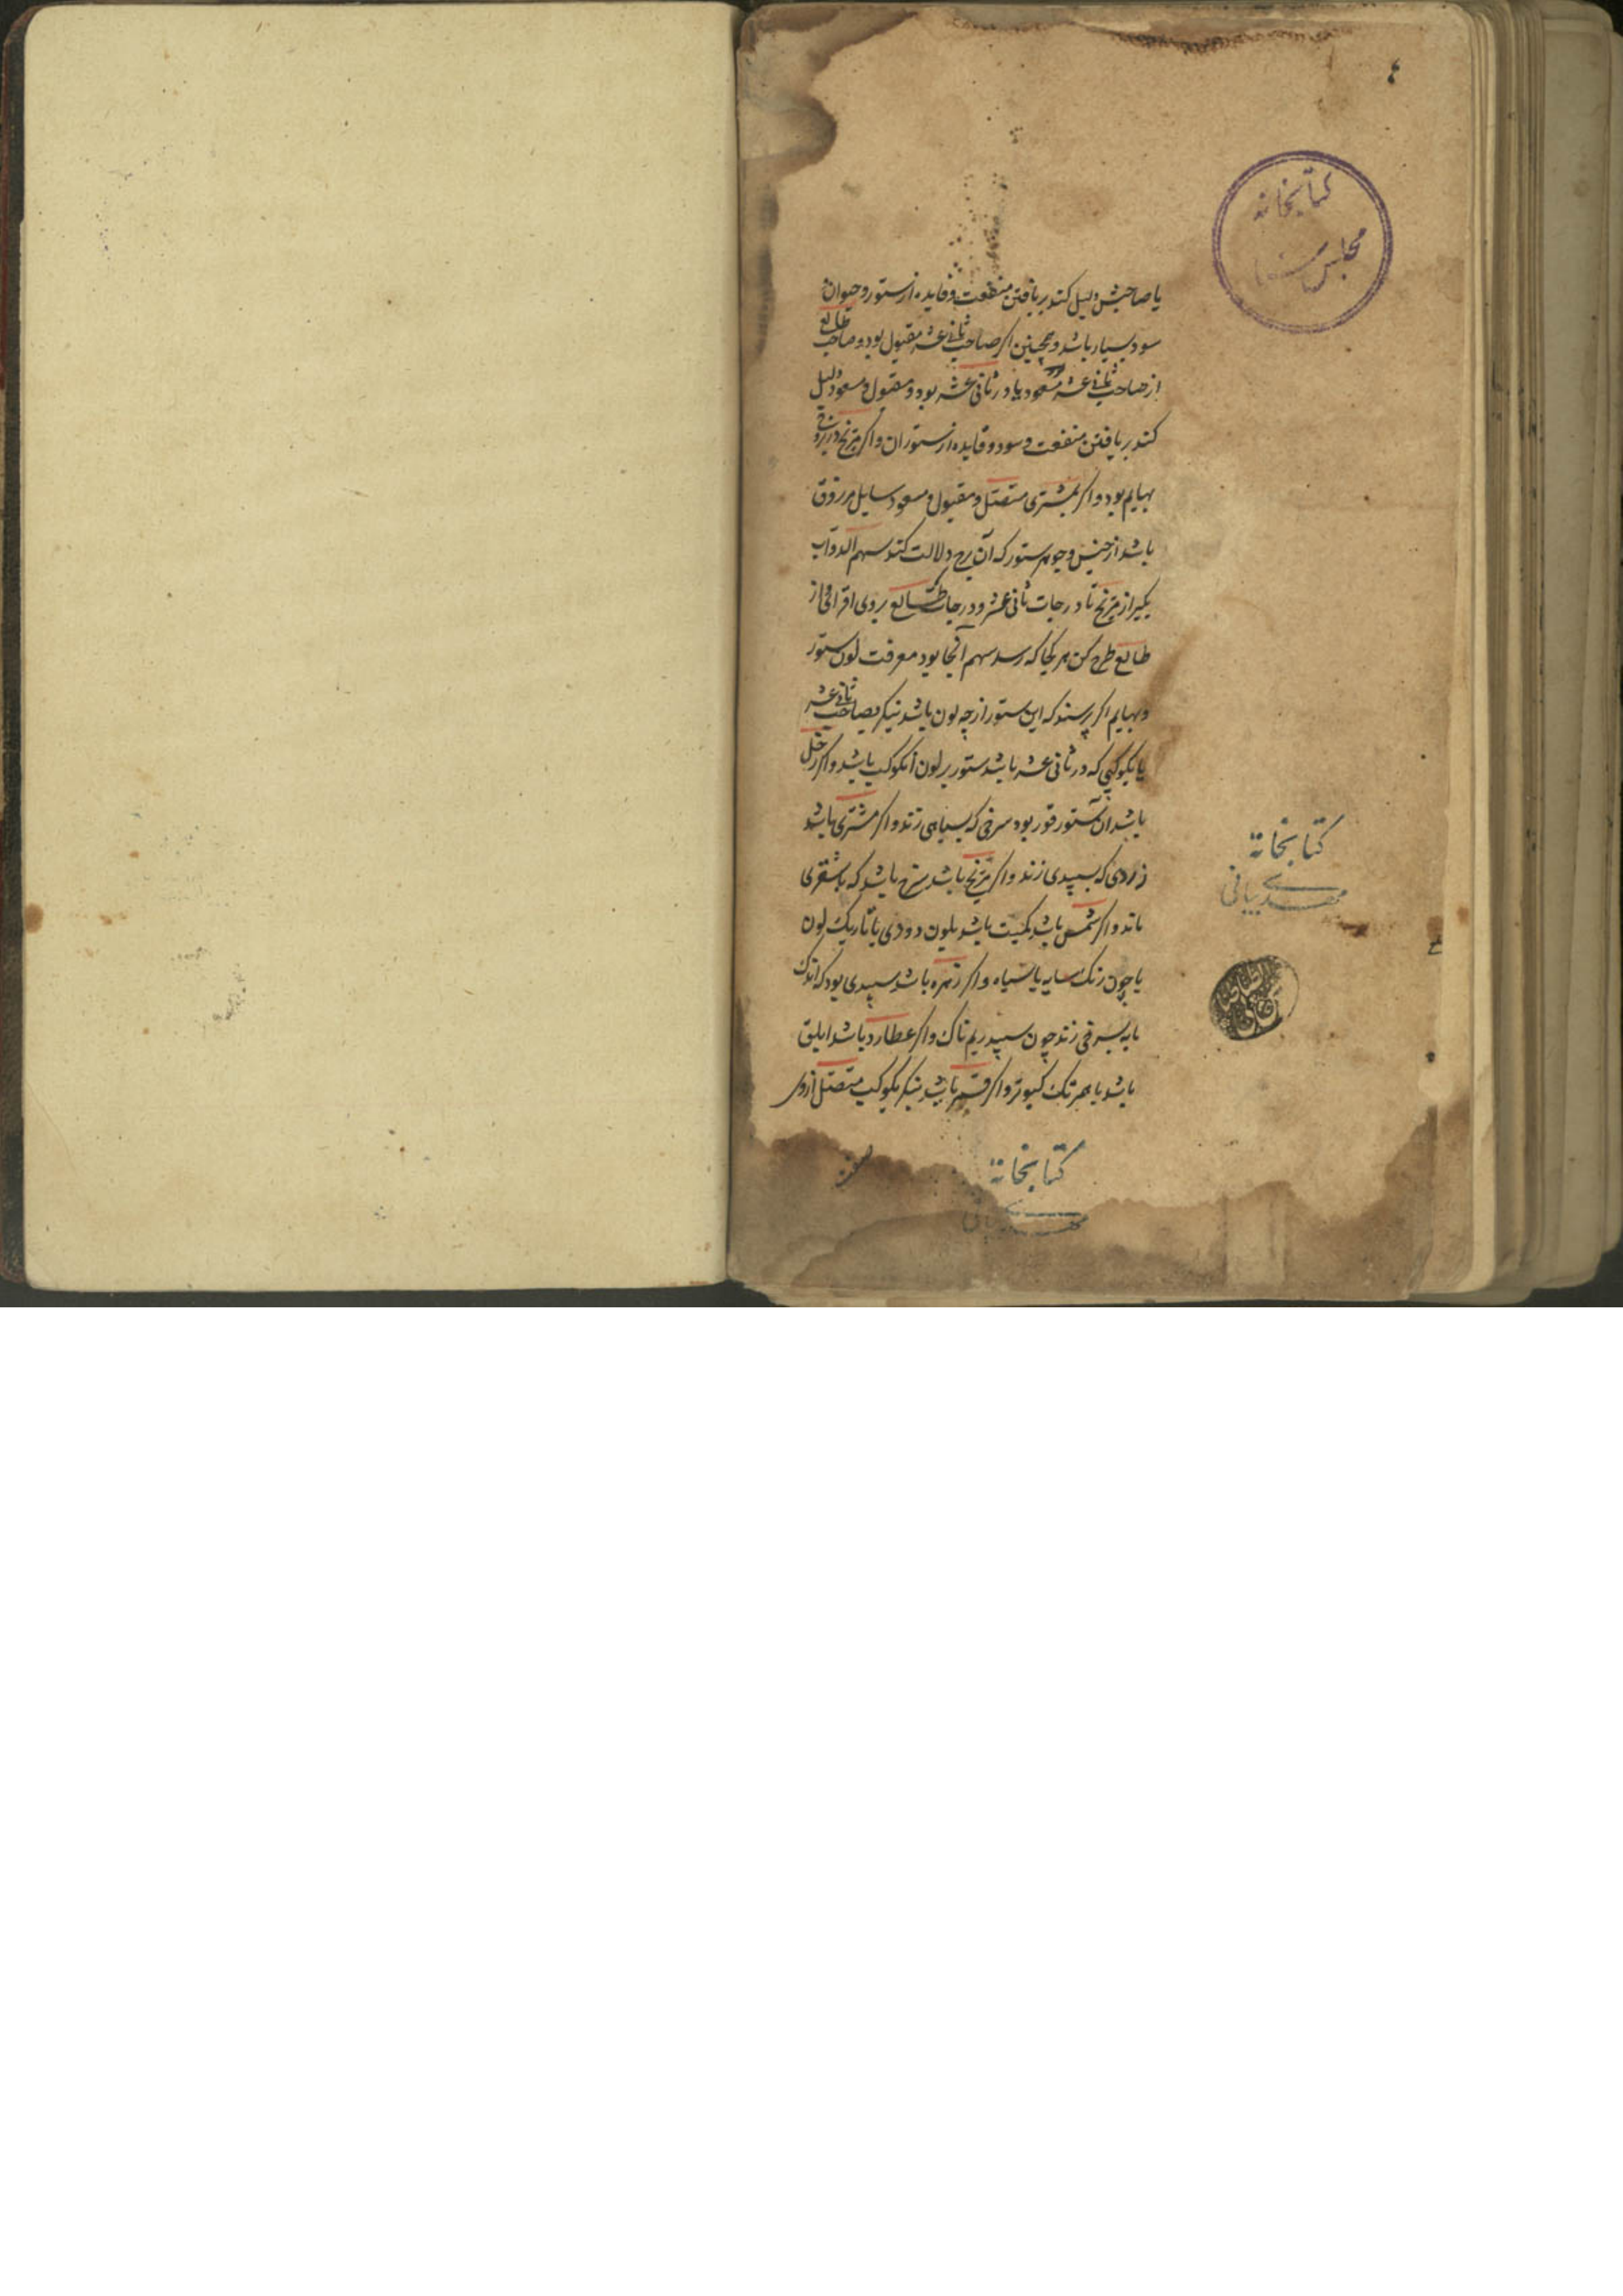 کتابخانه
مجلس
یا صاحبش دلیل کند بر یافتن منفعت و فایده از ستور و حیوان
سود بسیار باشد و همچنین اگر صاحب ثانی عشر مقبول بود و صاحب طالع
از صاحب ثانی عشر مسعود یا در ثانی عشر بود و مقبول و مسعود دلیل
کند بر یافتن منفعت و سود و فایده از ستوران و اگر مریخ در برج
بهایم بود و اگر بمشتری متصل و مقبول و مسعود سایل مرزوق
باشد از جنس و جوهر ستور که آن برج دلالت کند سهم الدواب
بگیر از مریخ تا درجات ثانی عشر و درجات طالع بر وی افزای و از
طالع طرح کن هر کجا که رسد سهم آنجا بود معرفت لون ستور
و بهایم اگر پرسند که این ستور از چه لون باشد نیکر بصاحب ثانی عشر
یا بکوکبی که در ثانی عشر باشد ستور بر لون آنکوکب باشد و اگر زحل
باشد آن ستور قور بود سرخی که بسیاهی زند و اگر مشتری باشد
زردی که بسپیدی زند و اگر مریخ باشد سرخ باشد که باشقری
ماند و اگر شمس باشد کمیت باشد بلون دودی یا تاریک لون
یا چون رنک سایه یا سیاه و اگر زهره باشد سپیدی بود که اندک
مایه بسرخی زند چون سپید ریم ناک و اگر عطارد باشد ابلق
باشد یا همرنک کبوتر و اگر قمر باشد نیکر بکوکب متصل از وی
کتابخانه
مهدی بیانی
کتابخانه
مهدی بیانی